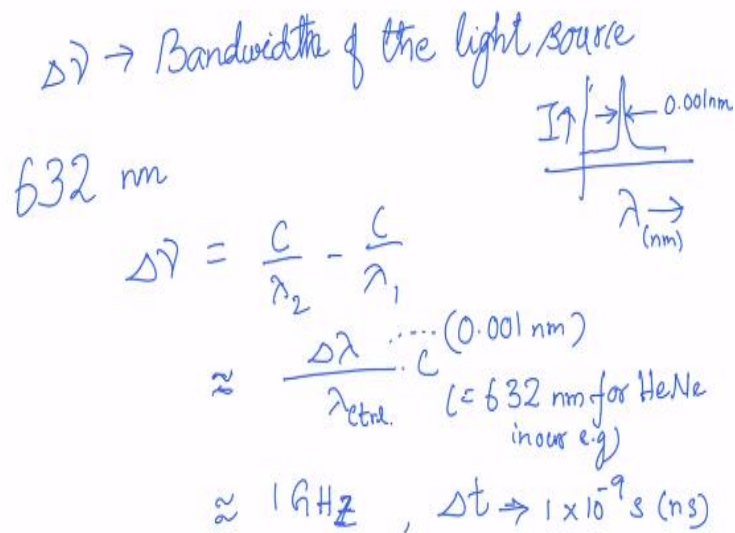 Δν → Bandwidth of the light source
I↑ → ← 0.001nm
632 nm
λ →
(nm)
Δν = C/λ₂ - C/λ₁
≈ Δλ/λctrl. · C ····(0.001 nm)
(= 632 nm for HeNe
in our e.g)
≈ 1 GHz , Δt → 1 × 10⁻⁹ s (ns)